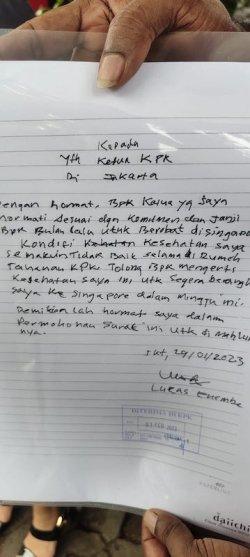 Kepada
Yth Ketua KPK
Di Jakarta
Dengan hormat, Bpk Ketua yg saya
hormati sesuai dgn Komitmen dan Janji
Bpk Bulan lalu utuk Berobat disingapo
Kondisi Kesehatan saya
semakin Tidak Baik selama di Rumah
Tahanan KPK. Tolong Bpk mengerti
Kesehatan saya ini utk segera berangk
saya Ke Singapore dalam minggu ini.
Demikian lah hormat saya dalam
Permohonan surat ini utk di
nya.
Jkt, 29/01/2023
Lukas Enembe
DITERIMA DI KPK
01 FEB 2023
daiichi